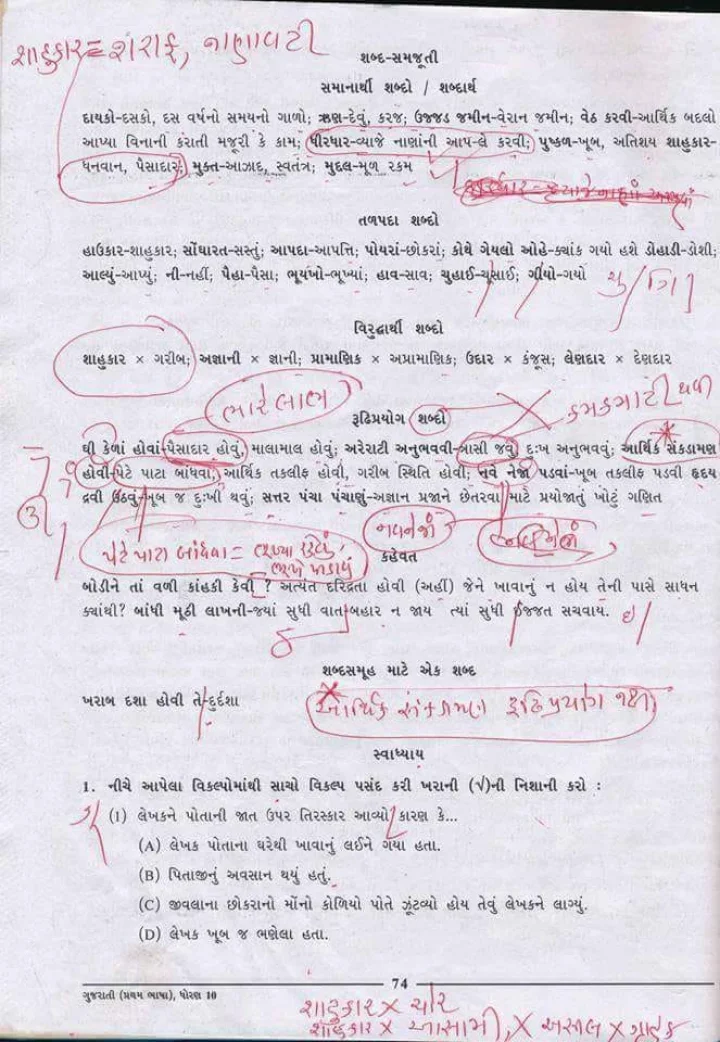 શાહુકાર = શરાફ, નાણાવટી
શબ્દ-સમજૂતી
સમાનાર્થી શબ્દો / શબ્દાર્થ
દાયકો-દસકો, દસ વર્ષનો સમયનો ગાળો; ઋણ-દેવું, કરજ; ઉજ્જડ જમીન-વેરાન જમીન; વેઠ કરવી-આર્થિક બદલો
આપ્યા વિનાની કરાતી મજૂરી કે કામ; ધીરધાર-વ્યાજે નાણાંની આપ-લે કરવી; પુષ્કળ-ખૂબ, અતિશય શાહુકાર-
ધનવાન, પૈસાદાર; મુક્ત-આઝાદ, સ્વતંત્ર; મુદલ-મૂળ રકમ
તળપદા શબ્દો
હાઉકાર-શાહુકાર; સોંઘારત-સસ્તું; આપદા-આપત્તિ; પોયરાં-છોકરાં; કોથે ગેયલો ઓહે-ક્યાંક ગયો હશે ડોહાડી-ડોશી;
આલ્યું-આપ્યું; ની-નહીં; પૈહા-પૈસા; ભૂયખો-ભૂખ્યાં; હાવ-સાવ; ચુહાઈ-ચૂસાઈ; ગીયો-ગયો
ચુ/ત્રિ]
વિરુદ્ધાર્થી શબ્દો
શાહુકાર × ગરીબ; અજ્ઞાની × જ્ઞાની; પ્રામાણિક × અપ્રામાણિક; ઉદાર × કંજૂસ; લેણદાર × દેણદાર
ભારે લાભ
કમકમાટી થવી
રૂઢિપ્રયોગ શબ્દો
ઘી કેળાં હોવાં-પૈસાદાર હોવું, માલામાલ હોવું; અરેરાટી અનુભવવી-ત્રાસી જવું દુઃખ અનુભવવું; આર્થિક સંકડામણ
હોવી-પેટે પાટા બાંધવા, આર્થિક તકલીફ હોવી, ગરીબ સ્થિતિ હોવી; નવ નેજા પડવાં-ખૂબ તકલીફ પડવી હૃદય
દ્રવી ઉઠવું-ખૂબ જ દુઃખી થવું; સત્તર પંચા પંચાણું-અજ્ઞાન પ્રજાને છેતરવા માટે પ્રયોજાતું ખોટું ગણિત
નવનેજાં
પેટે પાટા બાંધવા = ભૂખ્યા રહેવું,
કહેવત
બોડીને તાં વળી કાંહકી કેવી ? અત્યંત દરિદ્રતા હોવી (અહીં) જેને ખાવાનું ન હોય તેની પાસે સાધન
ક્યાંથી? બાંધી મૂઠી લાખની-જ્યાં સુધી વાત બહાર ન જાય ત્યાં સુધી ઈજ્જત સચવાય.
શબ્દસમૂહ માટે એક શબ્દ
ખરાબ દશા હોવી તે-દુર્દશા
આર્થિક સંકડામણ રૂઢિપ્રયોગ નથી
સ્વાધ્યાય
1. નીચે આપેલા વિકલ્પોમાંથી સાચો વિકલ્પ પસંદ કરી ખરાની (√)ની નિશાની કરો :
(1) લેખકને પોતાની જાત ઉપર તિરસ્કાર આવ્યો કારણ કે...
(A) લેખક પોતાના ઘરેથી ખાવાનું લઈને ગયા હતા.
(B) પિતાજીનું અવસાન થયું હતું.
(C) જીવલાના છોકરાનો મોંનો કોળિયો પોતે ઝૂંટવ્યો હોય તેવું લેખકને લાગ્યું.
(D) લેખક ખૂબ જ ભણેલા હતા.
74
ગુજરાતી (પ્રથમ ભાષા), ધોરણ 10
શાહુકાર × ચોર
શાહુકાર × આસામી, × અસીલ × ગ્રાહક